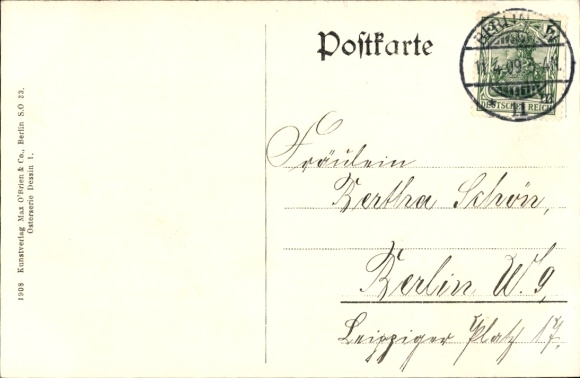 Postkarte
BERLIN - W.
11.4.09.
* 11 *
DEUTSCHES REICH
Fräulein
Bertha Schön,
Berlin W. 9,
Leipziger Platz 17.
1908 Kunstverlag Max O'Brien & Co., Berlin S.O 33.
Osterserie Dessin 1.